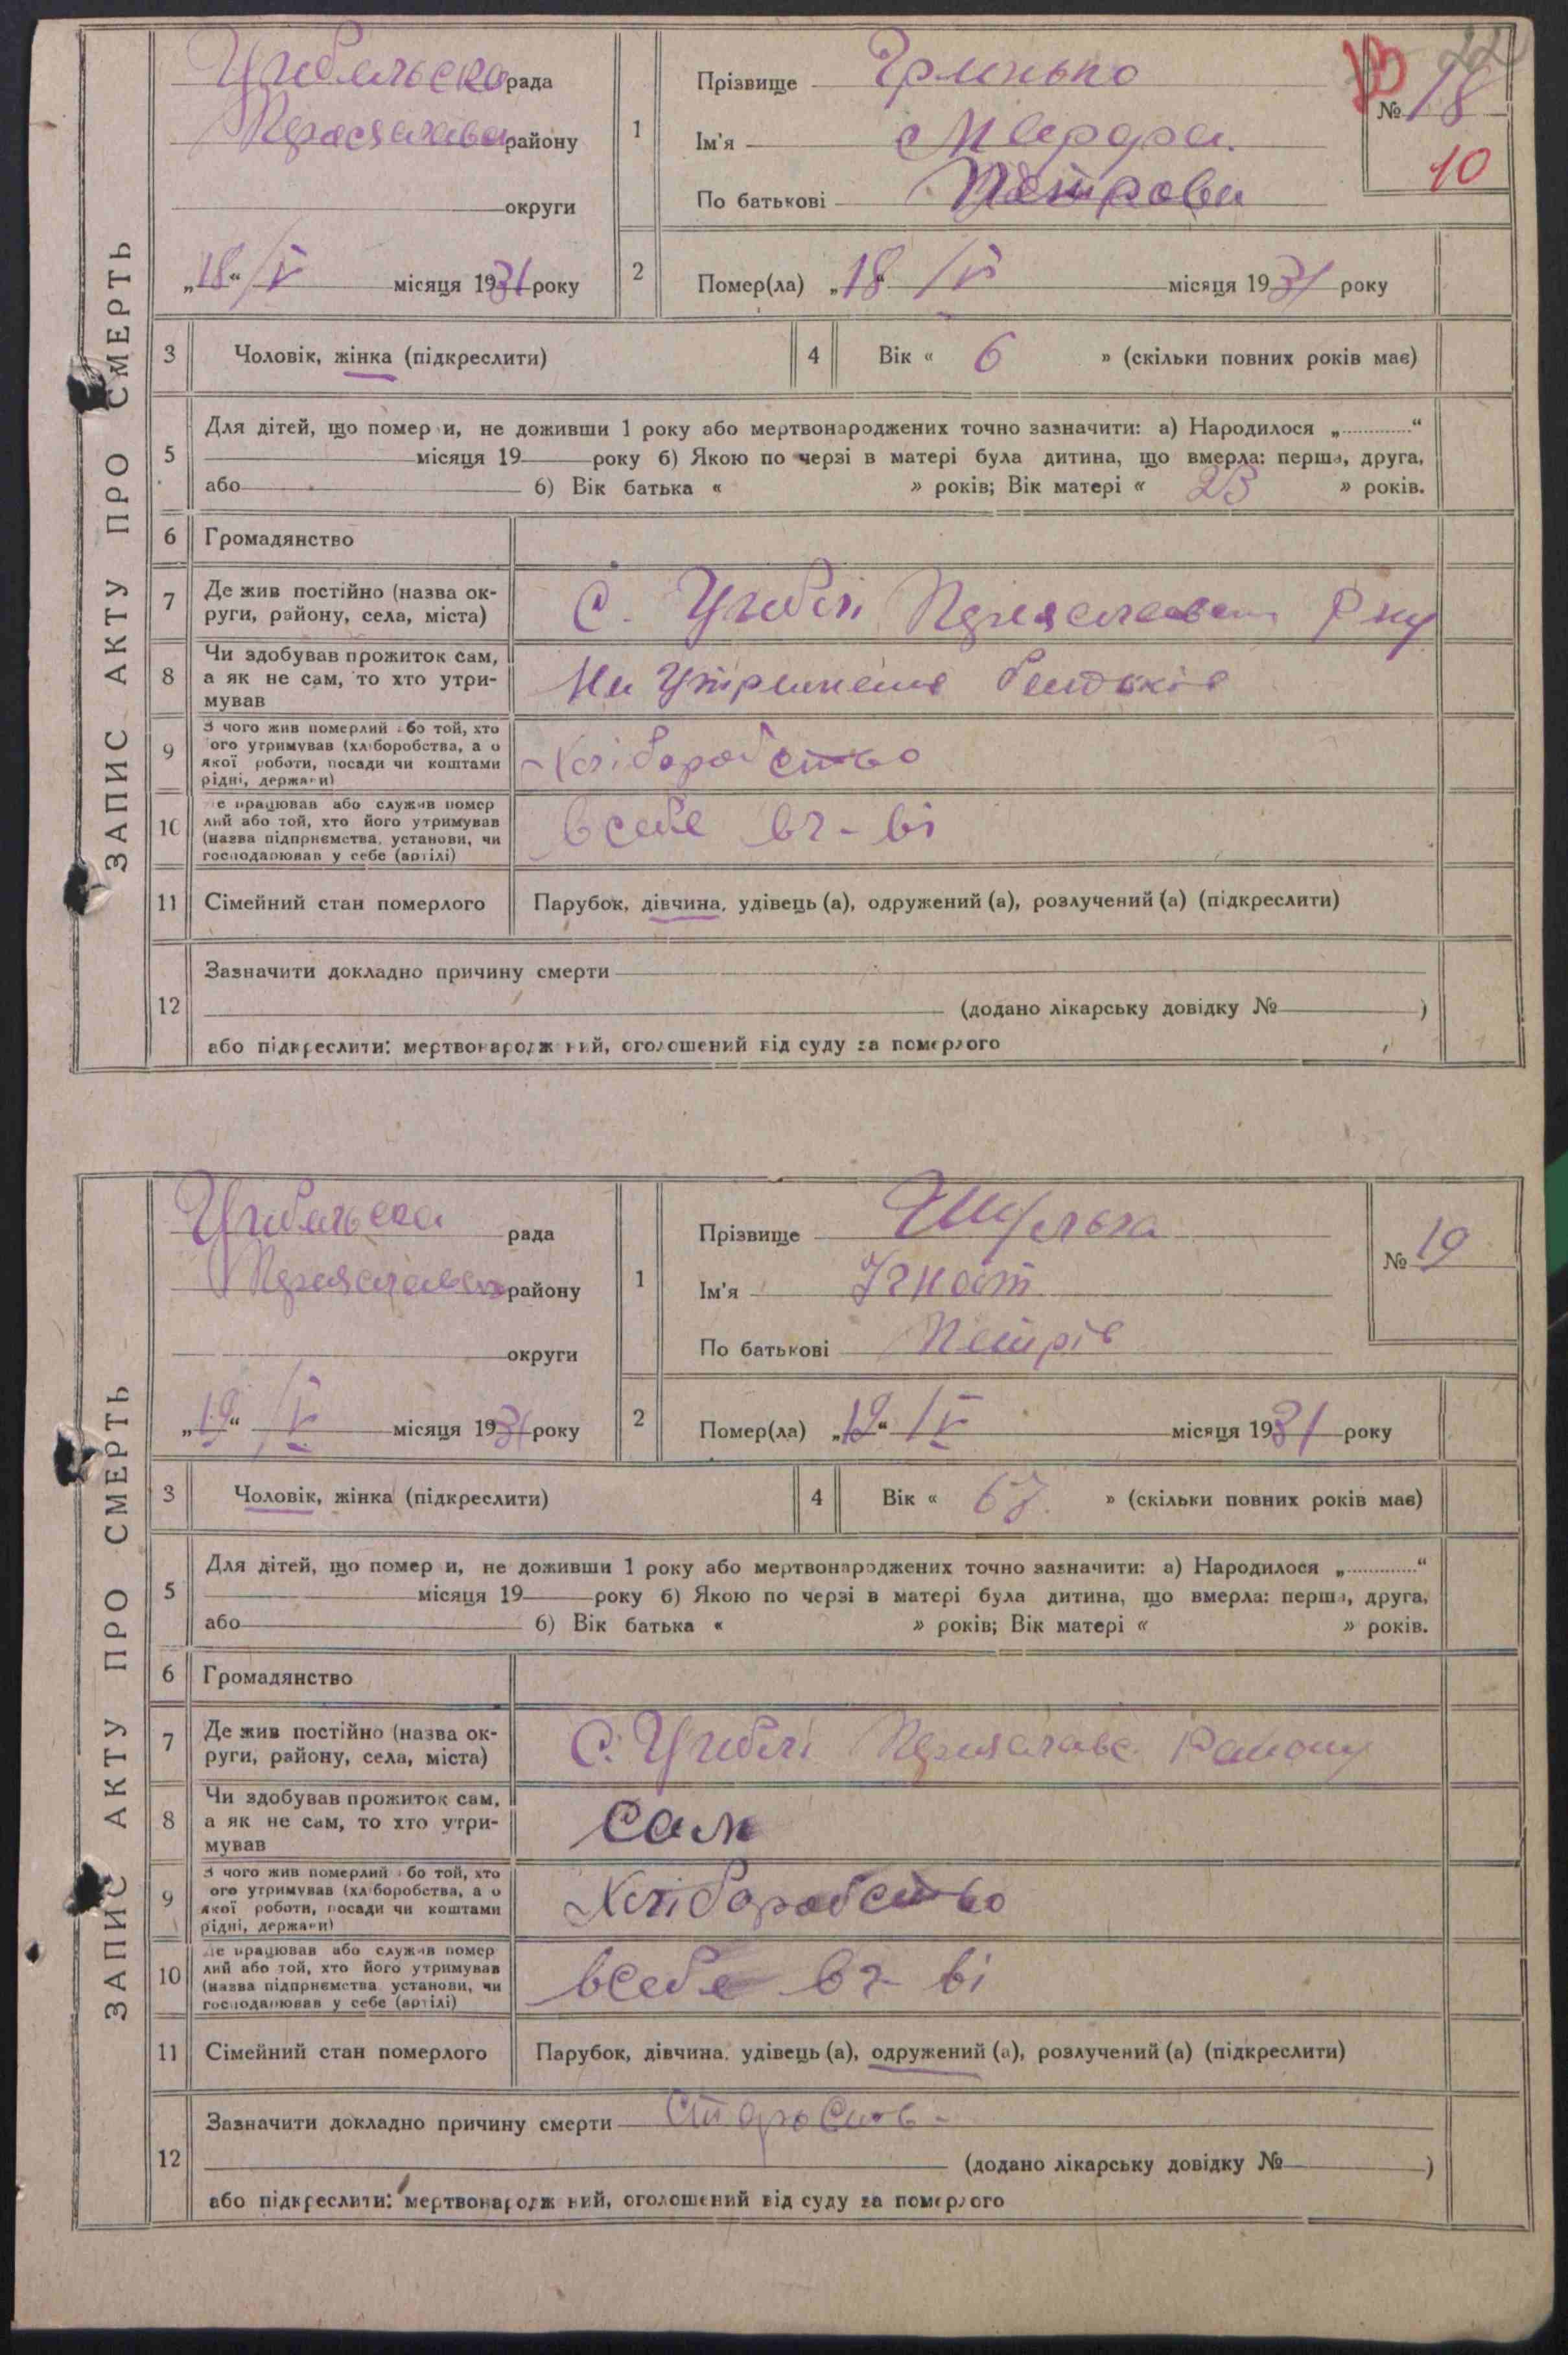 ЗАПИС АКТУ ПРО СМЕРТЬ
Циблiвська рада
району
округи
„18“ /V місяця 1931 року
1
Прізвище Гринько
Ім'я Марфа
По батькові Петрова
№ 18
10
2
Помер(ла) „18“ /V місяця 1931 року
3 Чоловік, жінка (підкреслити)
4 Вік « 6 » (скільки повних років має)
5 Для дітей, що помер и, не доживши 1 року або мертвонароджених точно зазначити: а) Народилося „ “
місяця 19 року б) Якою по черзі в матері була дитина, що вмерла: перша, друга,
або б) Вік батька « » років; Вік матері « 23 » років.
6 Громадянство
7 Де жив постійно (назва ок-
руги, району, села, міста)
С. Циблі Переяславськ Р-ну
8 Чи здобував прожиток сам,
а як не сам, то хто утри-
мував
На утриманні батьків
9 З чого жив померлий або той, хто
ого утримував (хліборобства, а о
якої роботи, посади чи коштами
рідні, держави)
Хліборобство
10 Де працював або служив помер
лий або той, хто його утримував
(назва підприємства, установи, чи
господарював у себе (артілі)
в себе в г-ві
11 Сімейний стан померлого
Парубок, дівчина, удівець (а), одружений (а), розлучений (а) (підкреслити)
12 Зазначити докладно причину смерти
(додано лікарську довідку № )
або підкреслити: мертвонародж ний, оголошений від суду за померлого
ЗАПИС АКТУ ПРО СМЕРТЬ
рада
району
округи
„19“ /V місяця 1931 року
1
Прізвище
Ім'я Ігнат
По батькові Петрів
№ 19
2
Помер(ла) „19“ /V місяця 1931 року
3 Чоловік, жінка (підкреслити)
4 Вік « 67 » (скільки повних років має)
5 Для дітей, що помер и, не доживши 1 року або мертвонароджених точно зазначити: а) Народилося „ “
місяця 19 року б) Якою по черзі в матері була дитина, що вмерла: перша, друга,
або б) Вік батька « » років; Вік матері « » років.
6 Громадянство
7 Де жив постійно (назва ок-
руги, району, села, міста)
С. Циблі Переяславс. Району
8 Чи здобував прожиток сам,
а як не сам, то хто утри-
мував
Сам
9 З чого жив померлий або той, хто
ого утримував (хліборобства, а о
якої роботи, посади чи коштами
рідні, держави)
Хліборобство
10 Де працював або служив помер
лий або той, хто його утримував
(назва підприємства, установи, чи
господарював у себе (артілі)
в себе в г-ві
11 Сімейний стан померлого
Парубок, дівчина, удівець (а), одружений (а), розлучений (а) (підкреслити)
12 Зазначити докладно причину смерти Старость
(додано лікарську довідку № )
або підкреслити: мертвонародж ний, оголошений від суду за померлого